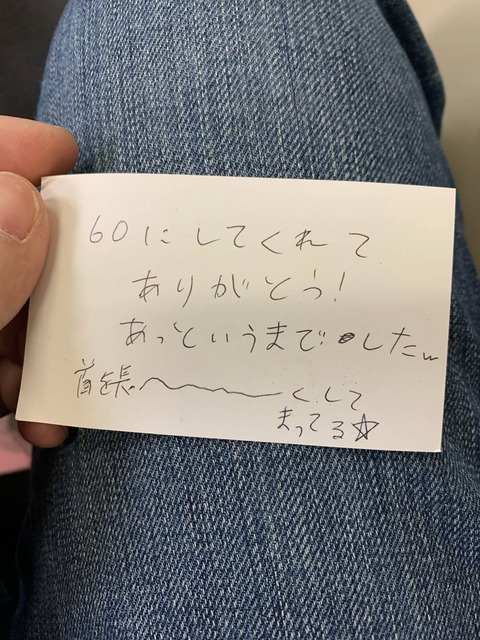 60にしてくれて
ありがとう!
あっというまでしたw
首を長〜〜〜〜くして
まってる☆